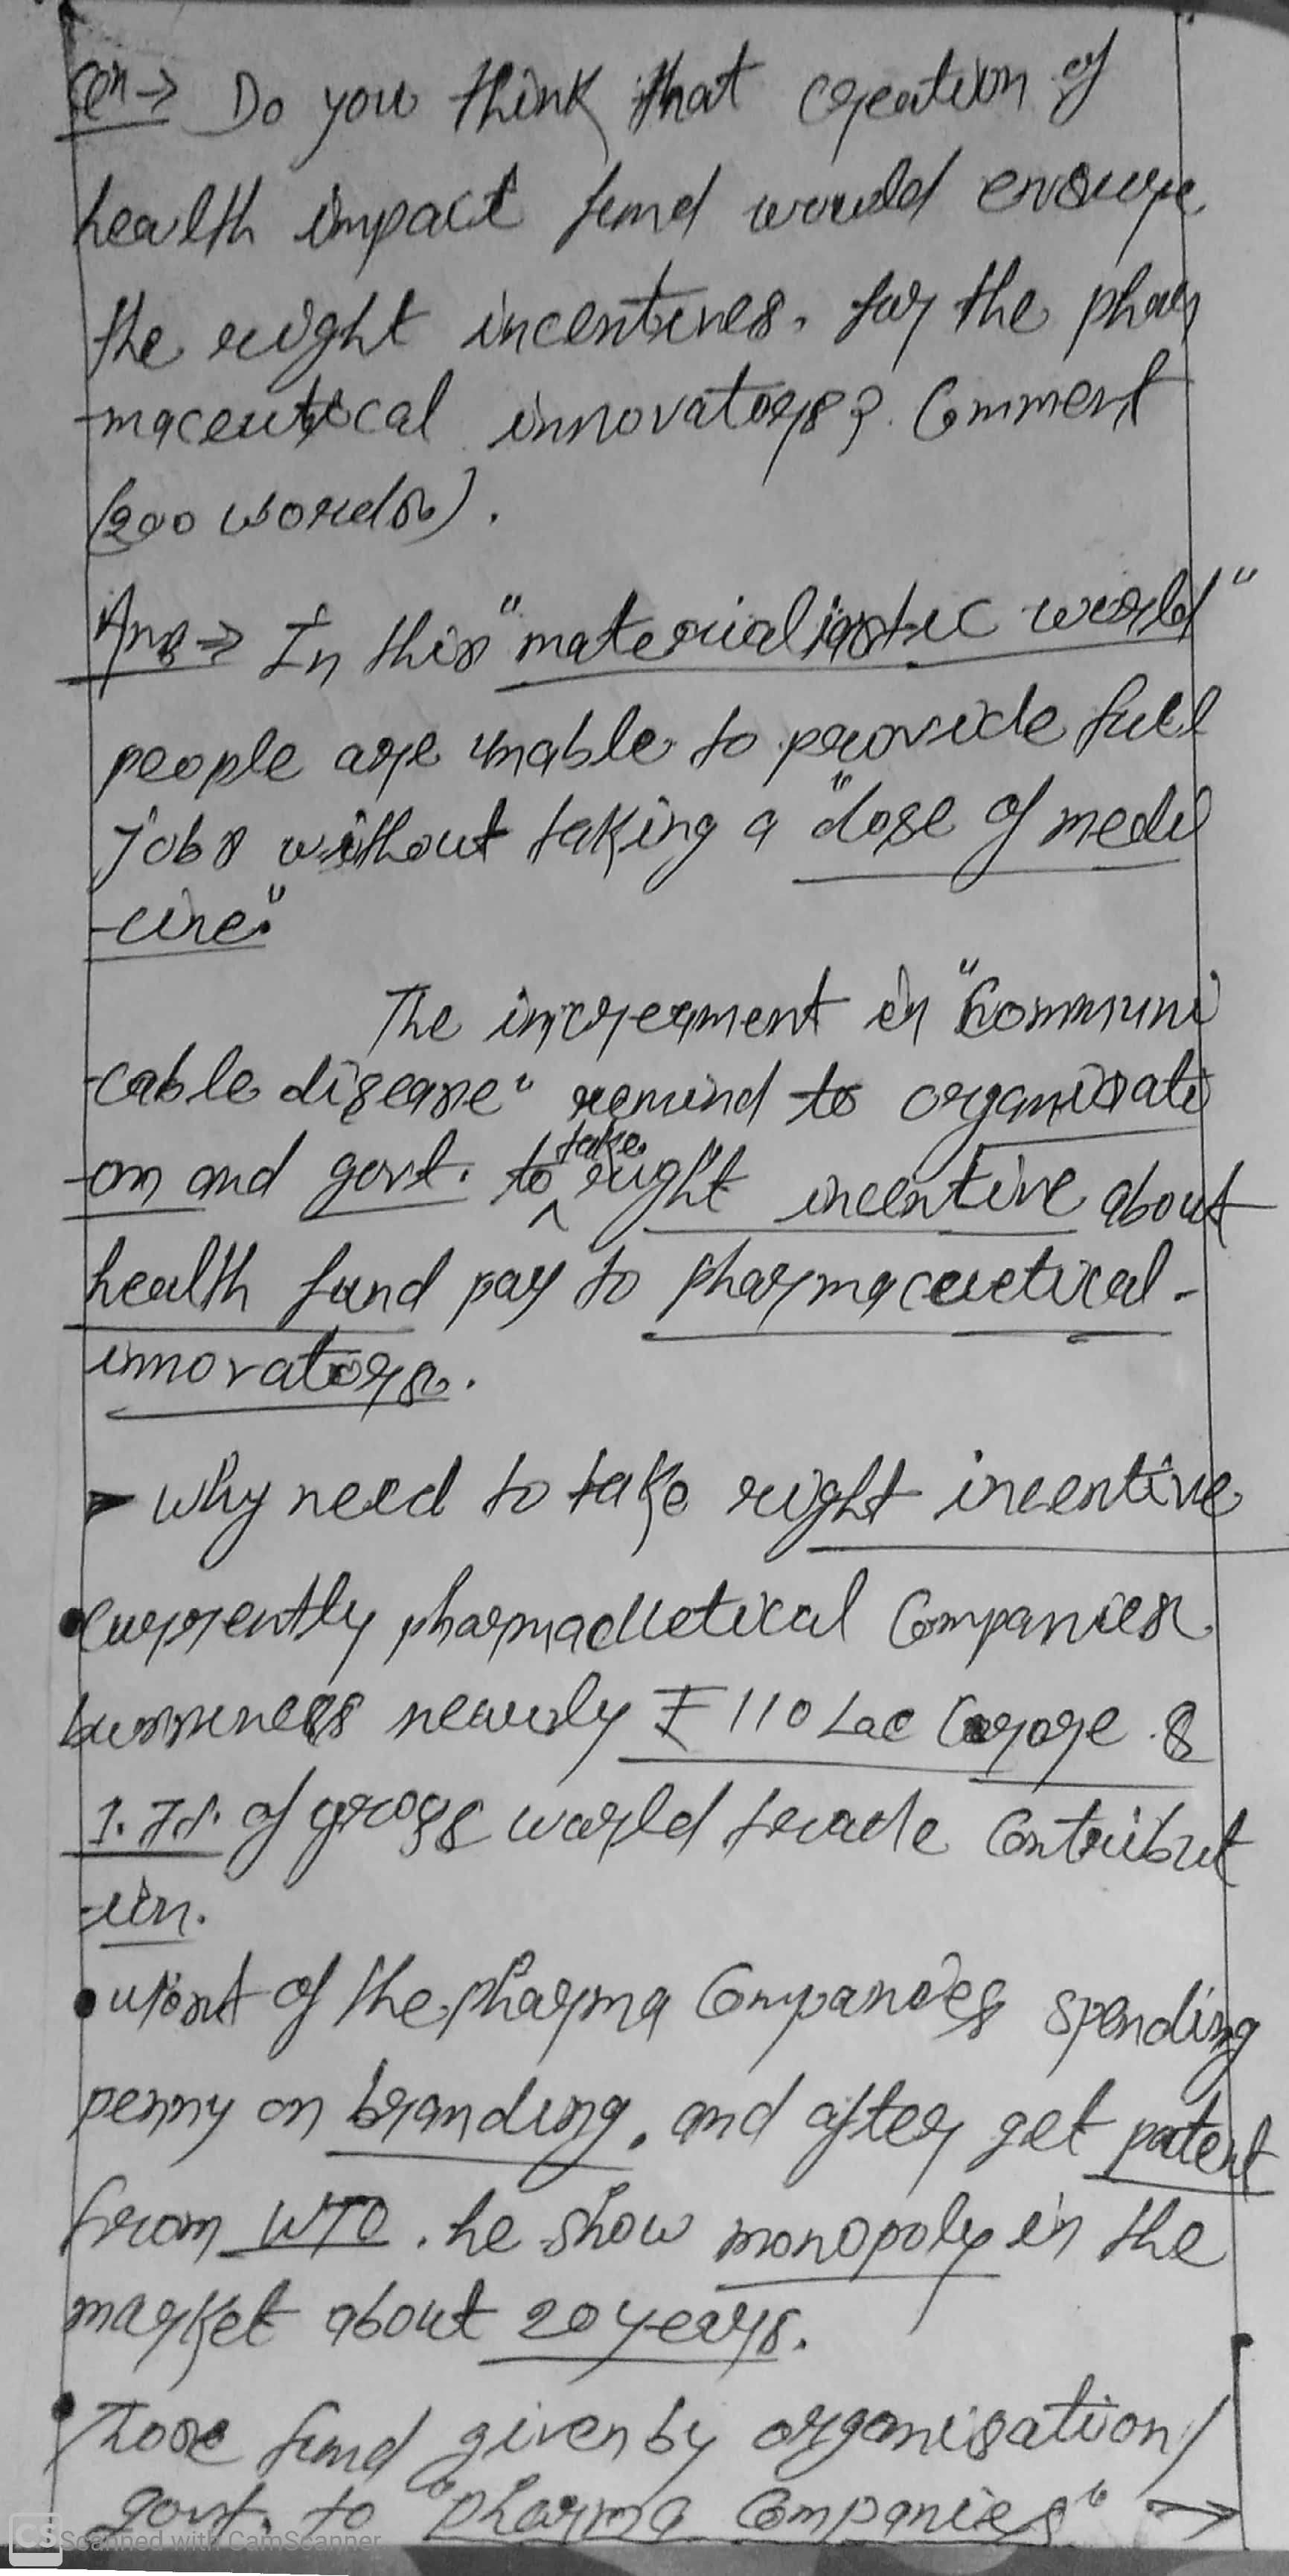 Do you think that creation of
health impact fund would ensure
the right incentives. for the phar
-maceutical innovators?. Comment
(200 words).
Ans→ In this "materialistic world"
people are unable to provide full
jobs without taking a "dose of medi
-cine."
The increament in "Communi
-cable disease" remind to organisati
-on and govt. to take right incentive about
health fund pay to pharmaceuetical -
innovators.
- why need to take right incentive
• Currently pharmaceuetical Companies
bussiness nearly ₹ 110 Lac Crore &
of gross world trade Contribut
-ion.
• of the pharma Companies spending
penny on branding. and after get patent
from WTO. he show monopoly in the
market about 20 years.
• Those fund given by organisation/
govt. to "Pharma Companies" →
CS Scanned with CamScanner